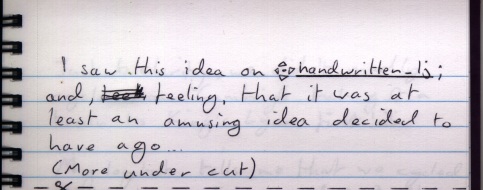 I saw this idea on handwritten_lj;
and, feeling, that it was at
least an amusing idea decided to
have a go...
(More under cut)